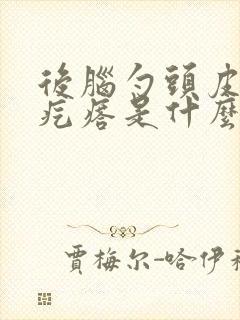 後腦勺頭皮
疙瘩是什麼
賈梅尔-哈伊